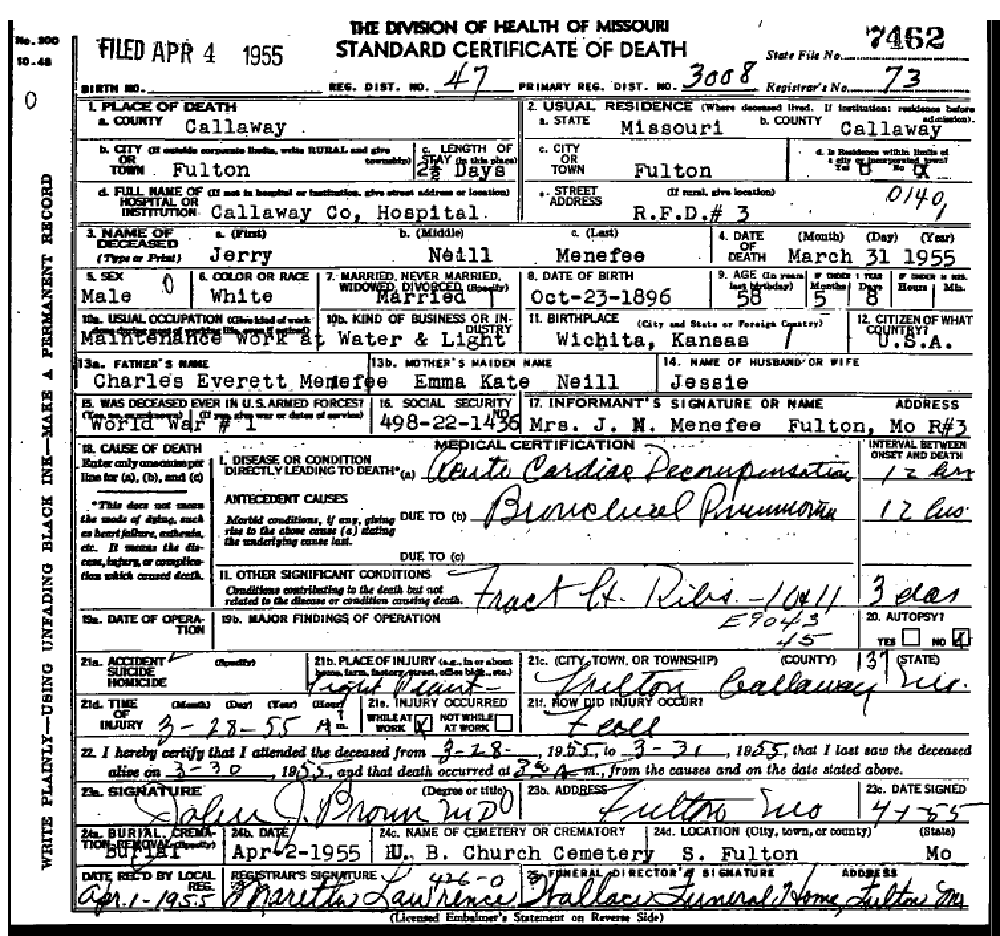 THE DIVISION OF HEALTH OF MISSOURI
STANDARD CERTIFICATE OF DEATH
No. 300
10-48
FILED APR 4 1955
State File No. 7462
0
BIRTH NO. REG. DIST. NO. 47 PRIMARY REG. DIST. NO. 3008 Registrar's No. 73
WRITE PLAINLY—USING UNFADING BLACK INK—MAKE A PERMANENT RECORD
1. PLACE OF DEATH
a. COUNTY Callaway
2. USUAL RESIDENCE (Where deceased lived. If institution: residence before admission).
a. STATE Missouri b. COUNTY Callaway
b. CITY (If outside corporate limits, write RURAL and give township)
OR TOWN Fulton
c. LENGTH OF STAY (in this place) 2½ Days
c. CITY OR TOWN Fulton
d. Is Residence within limits of a city or incorporated town?
Yes No X
d. FULL NAME OF (If not in hospital or institution, give street address or location)
HOSPITAL OR INSTITUTION Callaway Co, Hospital
e. STREET ADDRESS (If rural, give location)
R.F.D.# 3
0140
3. NAME OF DECEASED (Type or Print)
a. (First) Jerry b. (Middle) Neill c. (Last) Menefee
4. DATE OF DEATH (Month) (Day) (Year)
March 31 1955
5. SEX Male 0
6. COLOR OR RACE White
7. MARRIED, NEVER MARRIED, WIDOWED, DIVORCED (Specify)
Married 1
8. DATE OF BIRTH
Oct-23-1896
9. AGE (In years last birthday) 58
IF UNDER 1 YEAR Months 5 Days 8
IF UNDER 24 HRS. Hours Min.
10a. USUAL OCCUPATION (Give kind of work done during most of working life, even if retired)
Maintenance Work at
10b. KIND OF BUSINESS OR INDUSTRY
Water & Light
11. BIRTHPLACE (City and State or Foreign Country)
Wichita, Kansas
12. CITIZEN OF WHAT COUNTRY?
U.S.A.
13a. FATHER'S NAME
Charles Everett Menefee
13b. MOTHER'S MAIDEN NAME
Emma Kate Neill
14. NAME OF HUSBAND OR WIFE
Jessie
15. WAS DECEASED EVER IN U.S. ARMED FORCES?
(Yes, no, or unknown) (If yes, give war or dates of service)
World War # 1
16. SOCIAL SECURITY NO.
498-22-1436
17. INFORMANT'S SIGNATURE OR NAME ADDRESS
Mrs. J. N. Menefee Fulton, Mo R#3
18. CAUSE OF DEATH
Enter only one cause per line for (a), (b), and (c)
*This does not mean the mode of dying, such as heart failure, asthenia, etc. It means the disease, injury, or complication which caused death.
MEDICAL CERTIFICATION
INTERVAL BETWEEN ONSET AND DEATH
I. DISEASE OR CONDITION DIRECTLY LEADING TO DEATH* (a) Acute Cardiac Decompensation 12 hrs
ANTECEDENT CAUSES
Morbid conditions, if any, giving rise to the above cause (a) stating the underlying cause last.
DUE TO (b) Bronchial Pneumonia 12 hrs
DUE TO (c)
II. OTHER SIGNIFICANT CONDITIONS
Conditions contributing to the death but not related to the disease or condition causing death.
Fract Lt. Ribs - 10 & 11 3 das
19a. DATE OF OPERATION
19b. MAJOR FINDINGS OF OPERATION
E9043
45
20. AUTOPSY?
YES NO X
21a. ACCIDENT (Specify)
SUICIDE
HOMICIDE
21b. PLACE OF INJURY (e.g., in or about home, farm, factory, street, office bldg., etc.)
Light Plant
21c. (CITY, TOWN, OR TOWNSHIP) (COUNTY) (STATE)
137
Fulton Callaway Mo.
21d. TIME OF INJURY (Month) (Day) (Year) (Hour)
3-28-55 A m.
21e. INJURY OCCURRED
WHILE AT WORK X NOT WHILE AT WORK
21f. HOW DID INJURY OCCUR?
Fall
22. I hereby certify that I attended the deceased from 3-28-, 1955, to 3-31, 1955, that I last saw the deceased
alive on 3-30, 1955, and that death occurred at 3 A m., from the causes and on the date stated above.
23a. SIGNATURE (Degree or title)
John J. Brown MD
23b. ADDRESS
Fulton Mo
23c. DATE SIGNED
4-1-55
24a. BURIAL, CREMATION, REMOVAL (Specify)
Burial
24b. DATE
Apr-2-1955
24c. NAME OF CEMETERY OR CREMATORY
U. B. Church Cemetery
24d. LOCATION (City, town, or county) (State)
S. Fulton Mo
DATE REC'D BY LOCAL REG.
Apr. 1-1955
REGISTRAR'S SIGNATURE 426-0
Maretta Lawrence
25. FUNERAL DIRECTOR'S SIGNATURE ADDRESS
Wallace Funeral Home, Fulton Mo
(Licensed Embalmer's Statement on Reverse Side)